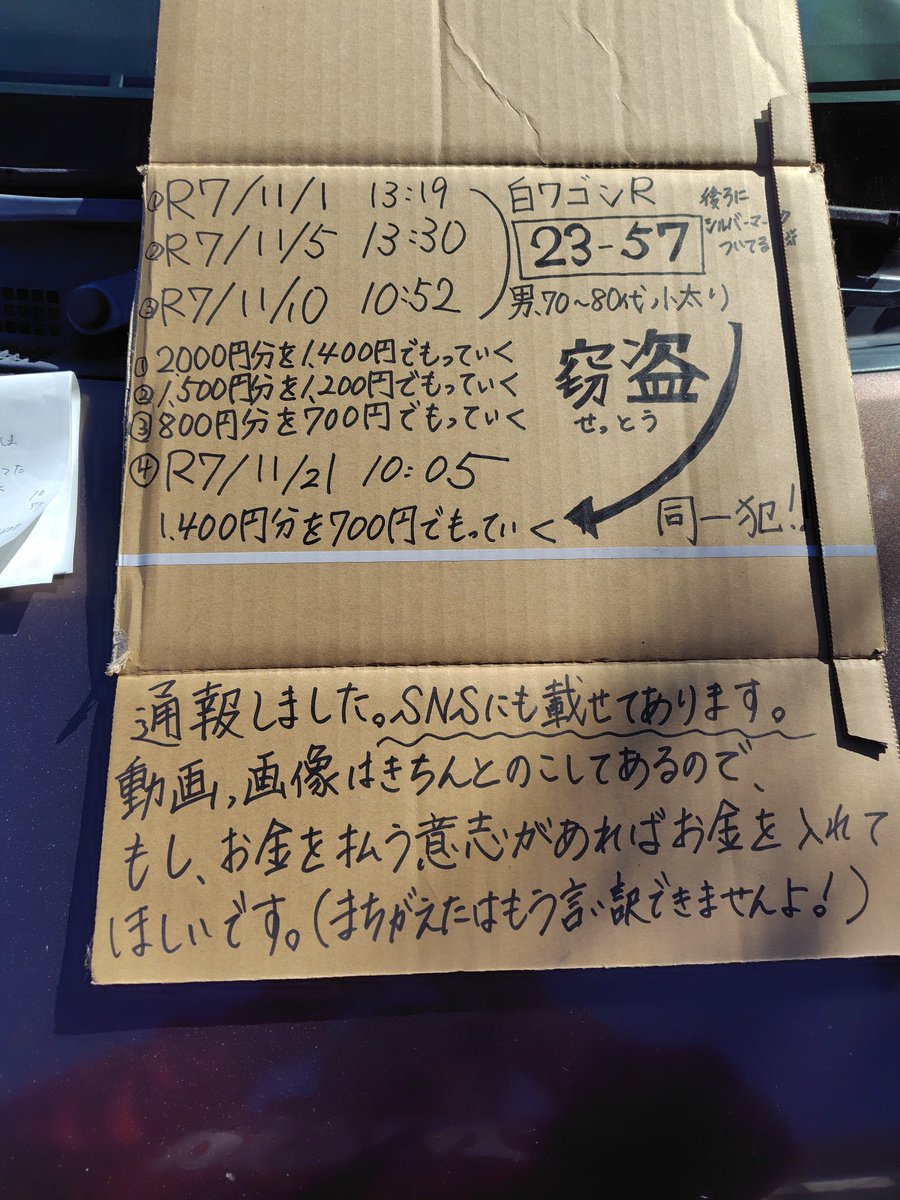 ①R7/11/1 13:19
②R7/11/5 13:30
③R7/11/10 10:52
白ワゴンR
23-57
男.70~80代小太り
後ろに
シルバーマーク
ついてる
①2000円分を1,400円でもっていく
②1,500円分を1,200円でもっていく
③800円分を700円でもっていく
窃盗
せっとう
④R7/11/21 10:05
1.400円分を700円でもっていく
同一犯!
通報しました。SNSにも載せてあります。
動画,画像はきちんとのこしてあるので、
もし、お金を払う意志があればお金を入れて
ほしいです。(まちがえたはもう言い訳できませんよ!)